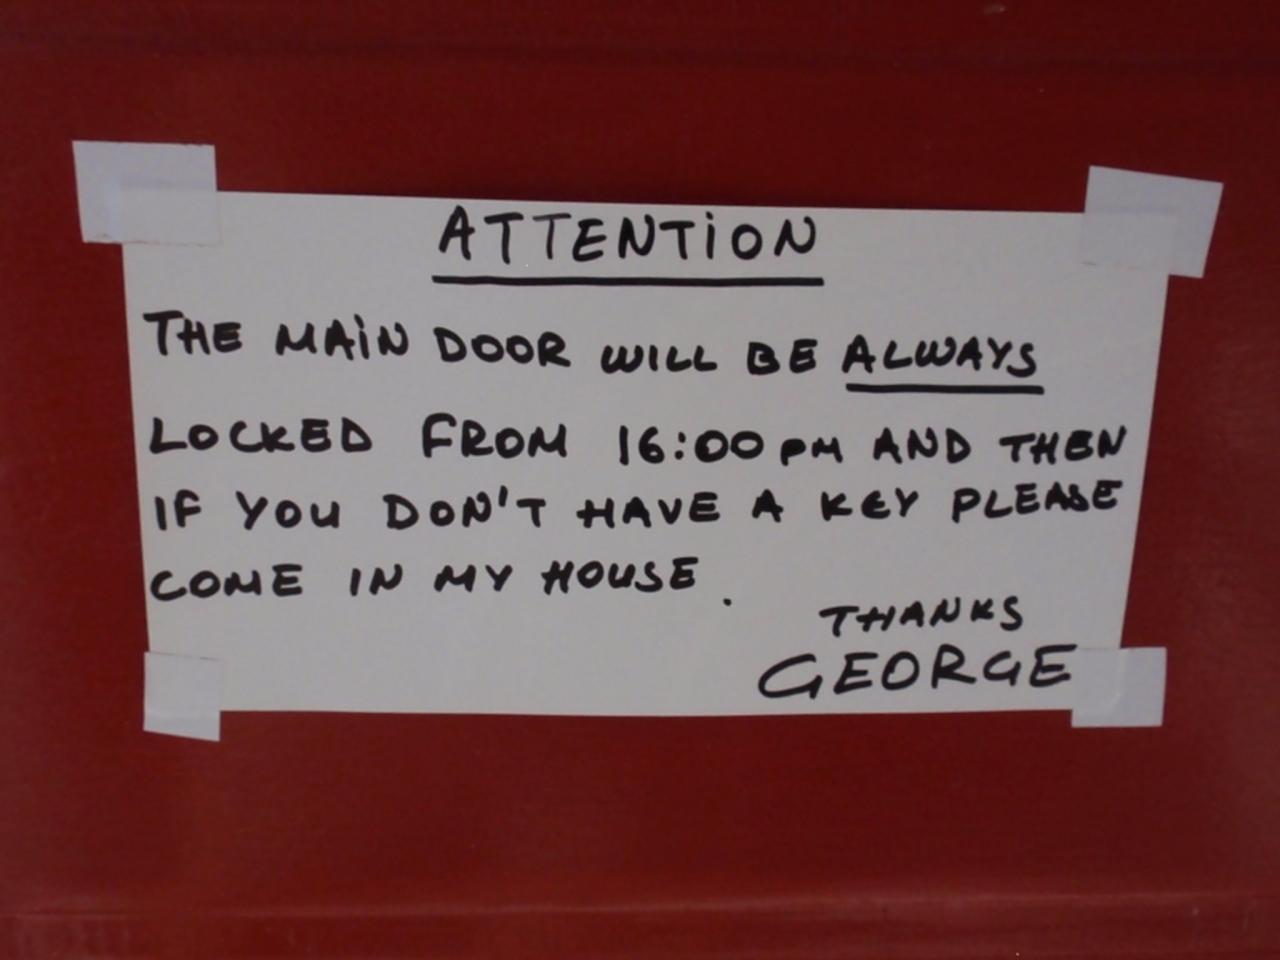 ATTENTION
THE MAIN DOOR WILL BE ALWAYS
LOCKED FROM 16:00 PM AND THEN
IF YOU DON'T HAVE A KEY PLEASE
COME IN MY HOUSE.
THANKS
GEORGE